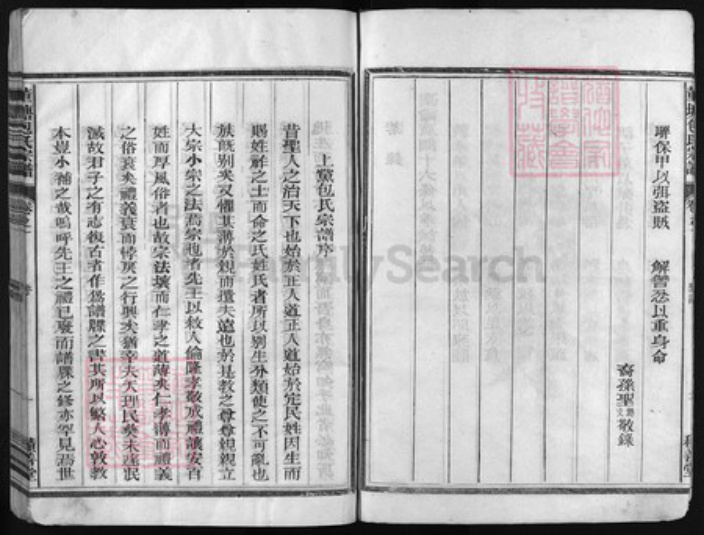 聯保甲以弭盜賊　解讐忿以重身命
裔孫聖敬錄
積善堂
上黨包氏宗譜序
昔聖人之治天下也始於正人道正人道始於定民姓因生而
賜姓胙之土而命之氏姓氏者所以別生分類使之不可亂也
族既別矣又懼其薄於親而遺夫遠也於是教之尊尊親親立
大宗小宗之法焉宗也者先王以敘人倫隆孝敬成禮讓安百
姓而厚風俗者也故宗法壞而仁孝之道薄矣仁孝薄而禮義
之俗衰矣禮義衰而悖戾之行興矣猶幸夫天理民彝未遽泯
滅故君子之有志復古者作為譜牒之書其所以繫人心敦教
本豈小補之哉嗚呼先王之禮已廢而譜牒之修亦罕見焉世
包氏宗譜
積善堂
FamilySearch